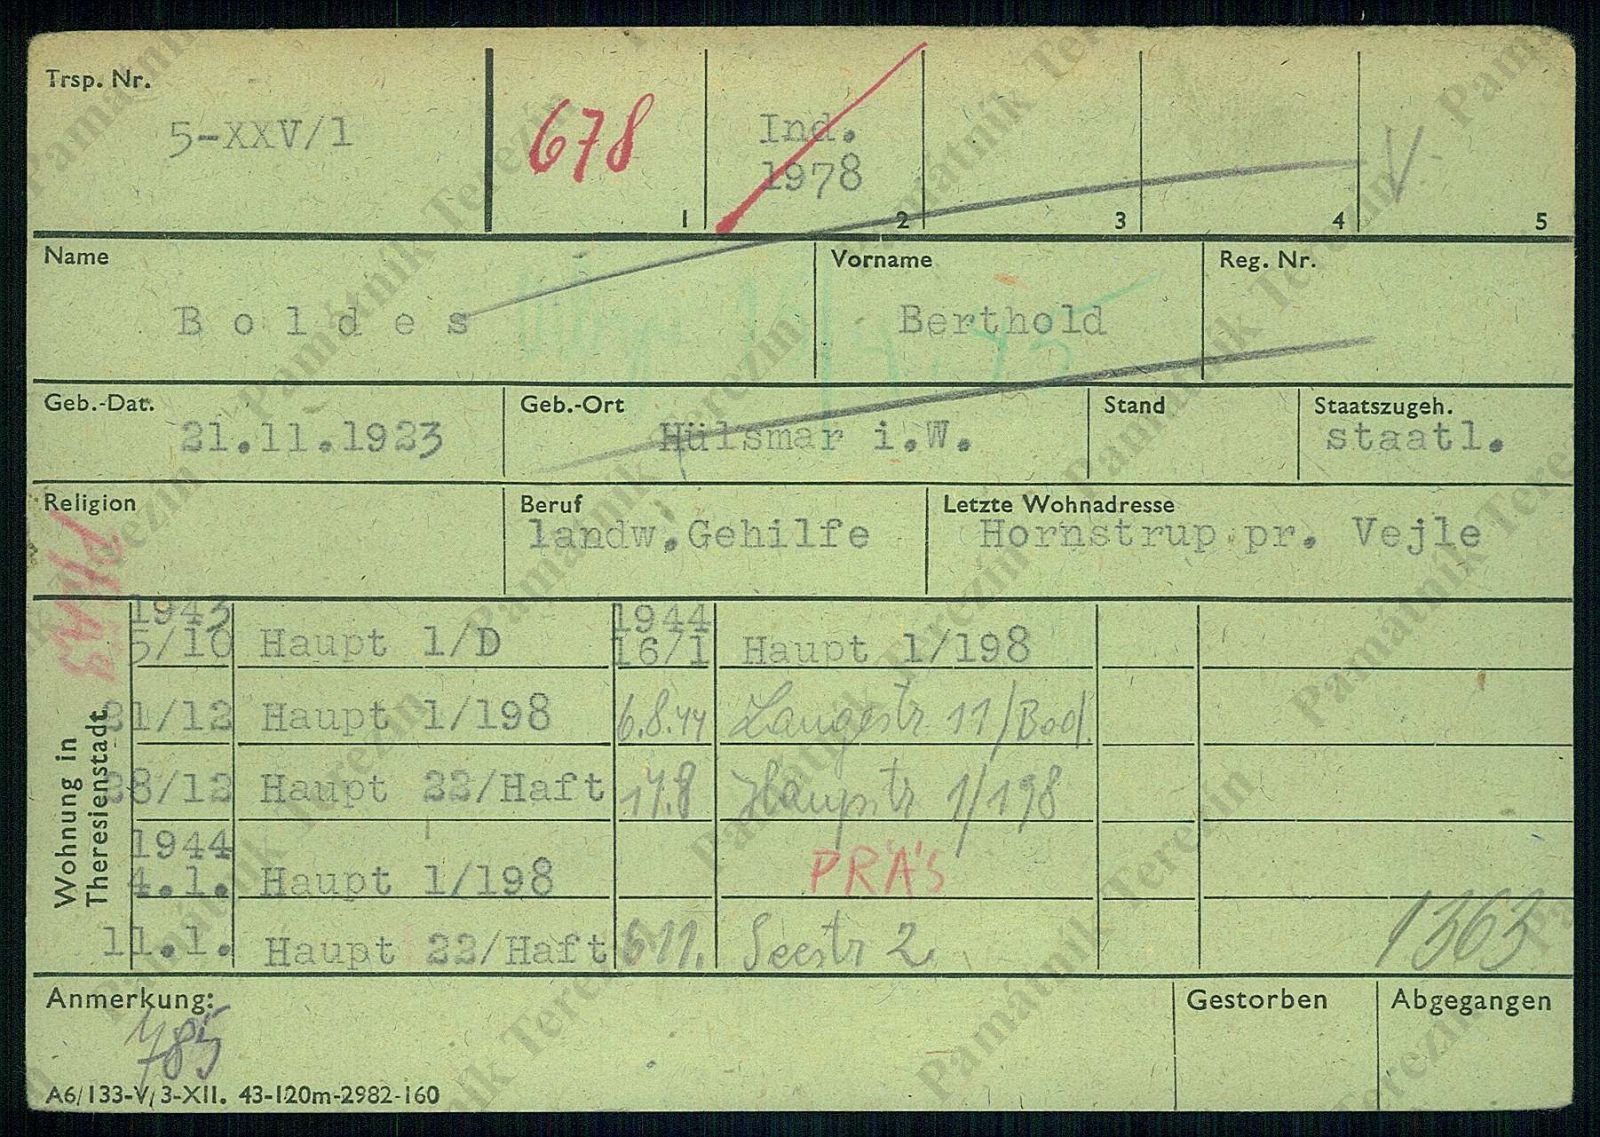 Trsp. Nr.
5-XXV/1
678
Ind.
1978
1 2 3 4 5
Name Vorname Reg. Nr.
Boldes Berthold
Geb.-Dat. Geb.-Ort Stand Staatszugeh.
21.11.1923 Hülsmar i.W. staatl.
Religion Beruf Letzte Wohnadresse
landw.Gehilfe Hornstrup pr. Vejle
PRÄS
Wohnung in
Theresienstadt
1943
5/10 Haupt 1/D
21/12 Haupt 1/198
28/12 Haupt 22/Haft
1944
4.1. Haupt 1/198
11.1. Haupt 22/Haft
1944
16/1 Haupt 1/198
6.8.44 Langestr 11/Bod.
17.8 Haupstr 1/198
PRÄS
Seestr 2
1363
Anmerkung: Gestorben Abgegangen
785
A6/133-V/3-XII. 43-120m-2982-160
Památník Terezín